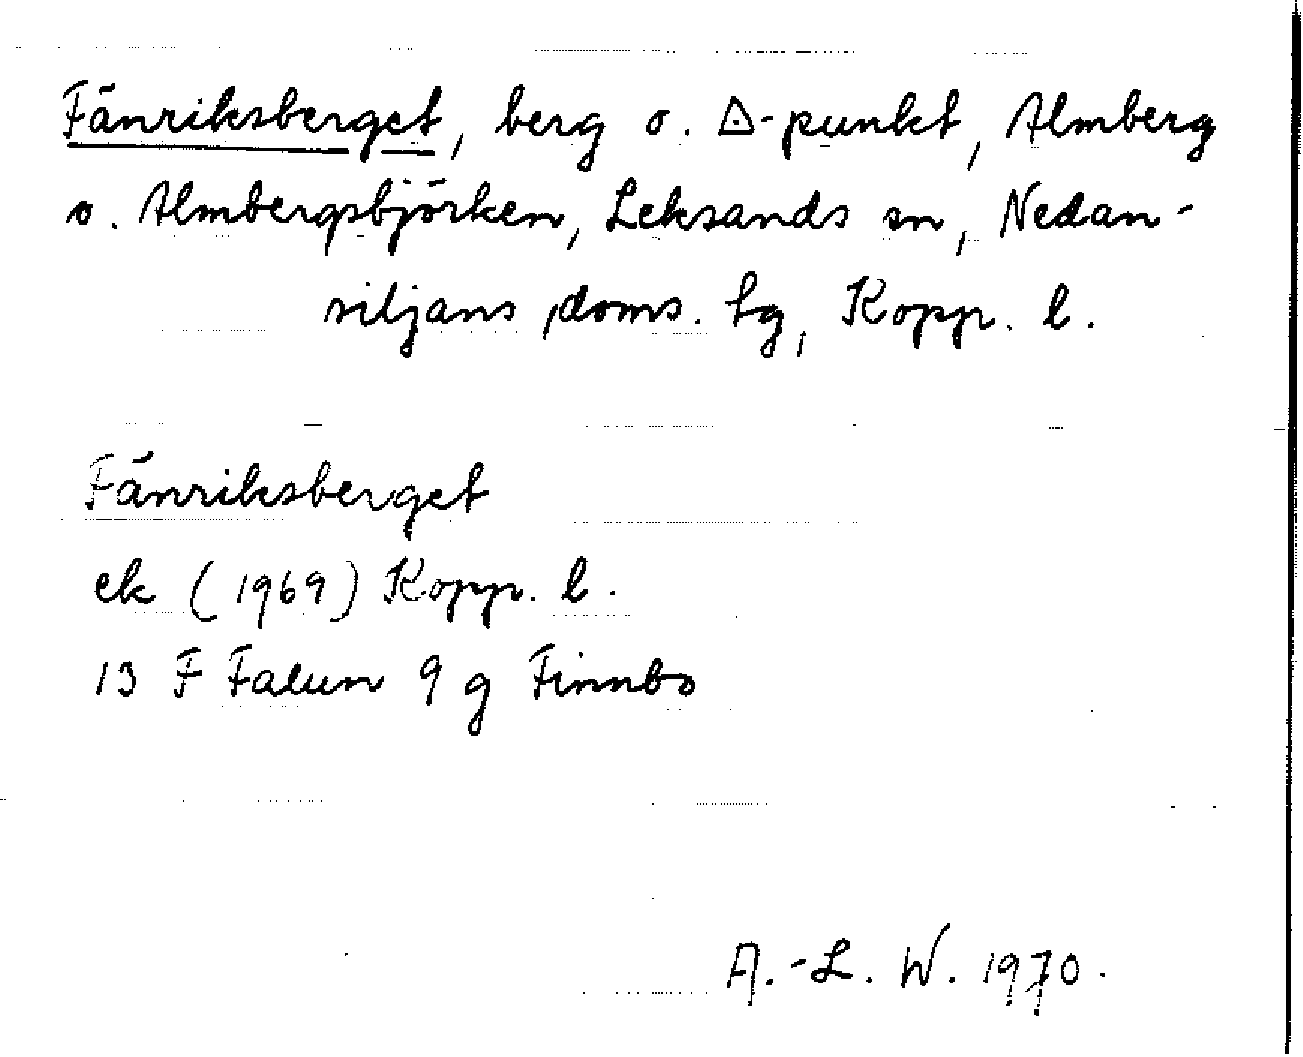 Fänriksberget, berg o. △-punkt, Almberg
o. Almbergsbjörken, Leksands sn, Nedan-
siljans doms. tg, Kopp. l.
Fänriksberget
ek (1969) Kopp. l.
13 F Falun 9 g Finnbo
A.-L. W. 1970.